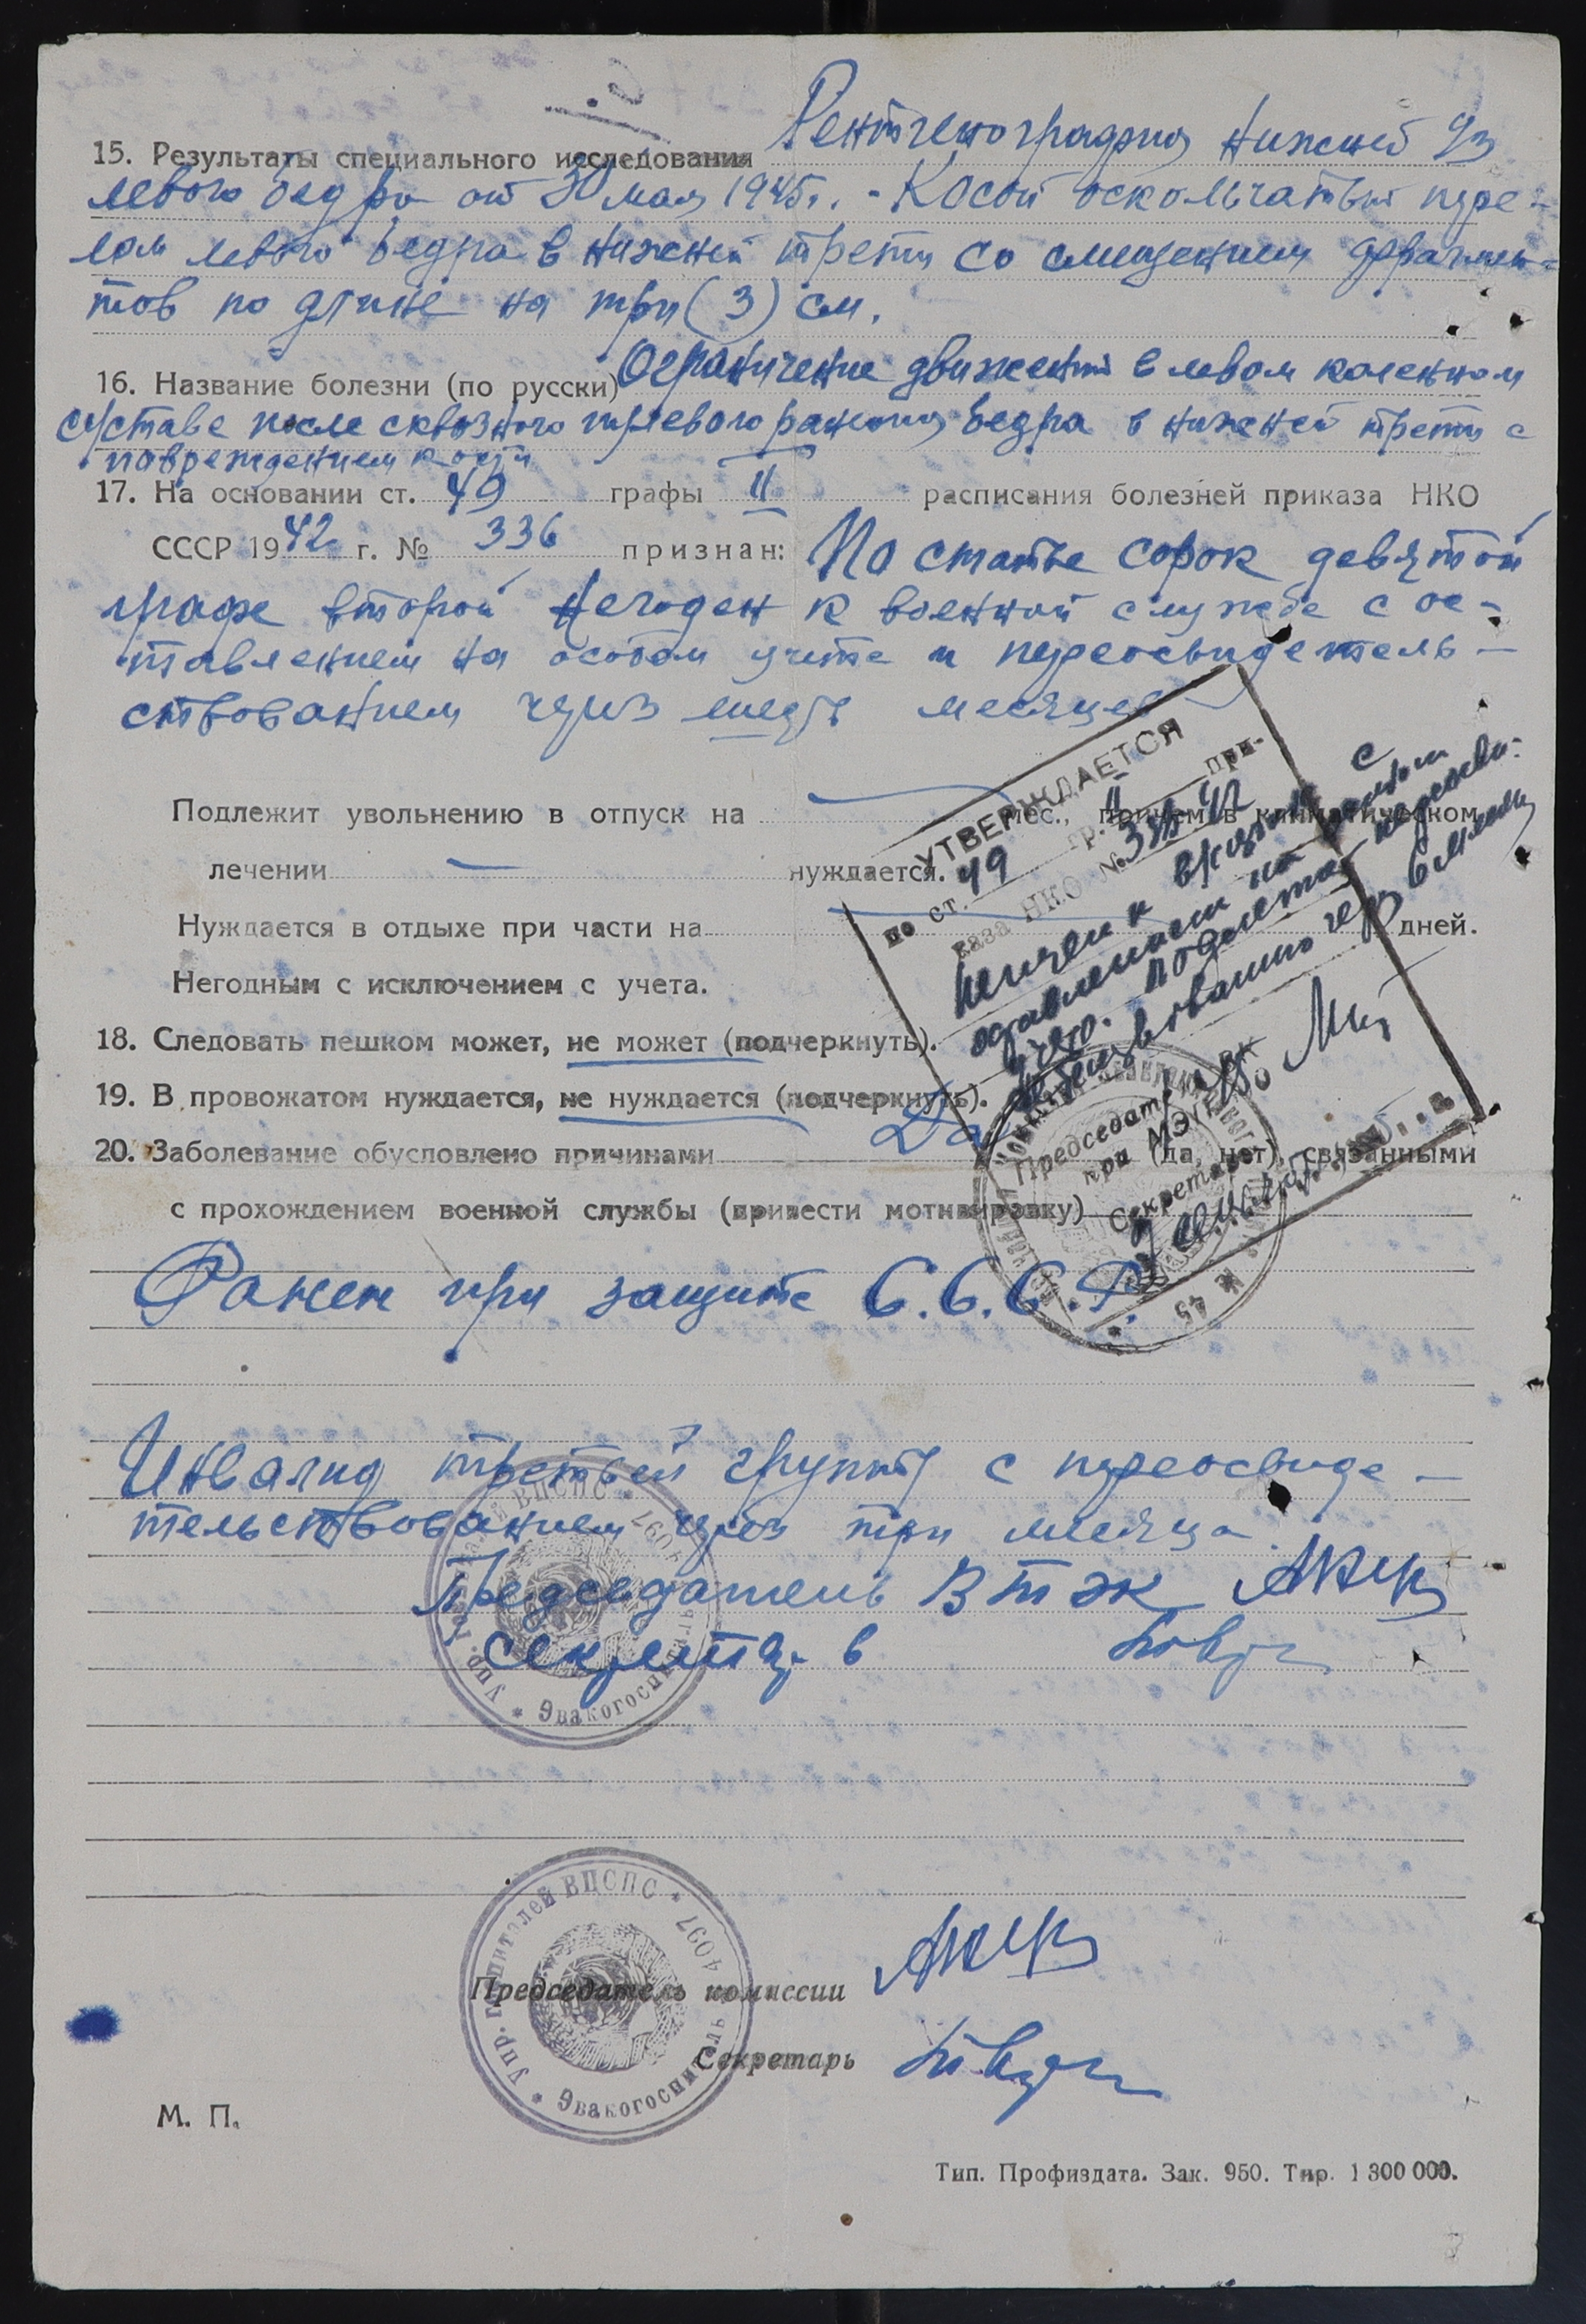 15. Результаты специального исследования Рентгенография нижней 1/3
левого бедра от 30 мая 1945г. - Косой оскольчатый пере-
лом левого бедра в нижней трети со смещением фрагмен-
тов по длине на три (3) см.
16. Название болезни (по русски) Ограничение движений в левом коленном
суставе после сквозного пулевого ранения бедра в нижней трети с
повреждением кости
17. На основании ст. 49 графы II расписания болезней приказа НКО
СССР 1942 г. № 336 признан: По статье сорок девятой
графе второй Негоден к военной службе с ос-
тавлением на особом учете и переосвидетель-
ствованием через шесть месяцев
Подлежит увольнению в отпуск на мес., причем в климатическом
лечении — нуждается.
Нуждается в отдыхе при части на дней.
Негодным с исключением с учета.
18. Следовать пешком может, не может (подчеркнуть).
19. В провожатом нуждается, не нуждается (подчеркнуть).
20. Заболевание обусловлено причинами Да (да, нет), связанными
с прохождением военной службы (привести мотивировку)
УТВЕРЖДАЕТСЯ
по ст. 49 гр. II при-
каза НКО № 336 42
с
оставлением на
учет. подлежит переосви-
через 6 месяц
Председатель ВК
при МЭП
Секретарь
45
Ранен при защите С.С.С.Р.
Инвалид третьей группы с переосвиде-
тельствованием через три месяца
Председатель ВТЭК
секретарь
Упр. госпиталей ВЦСПС * 4097 * Эвакогоспиталь
Упр. госпиталей ВЦСПС * 4097 * Эвакогоспиталь
Председатель комиссии
Секретарь
М. П.
Тип. Профиздата. Зак. 950. Тир. 1 300 000.